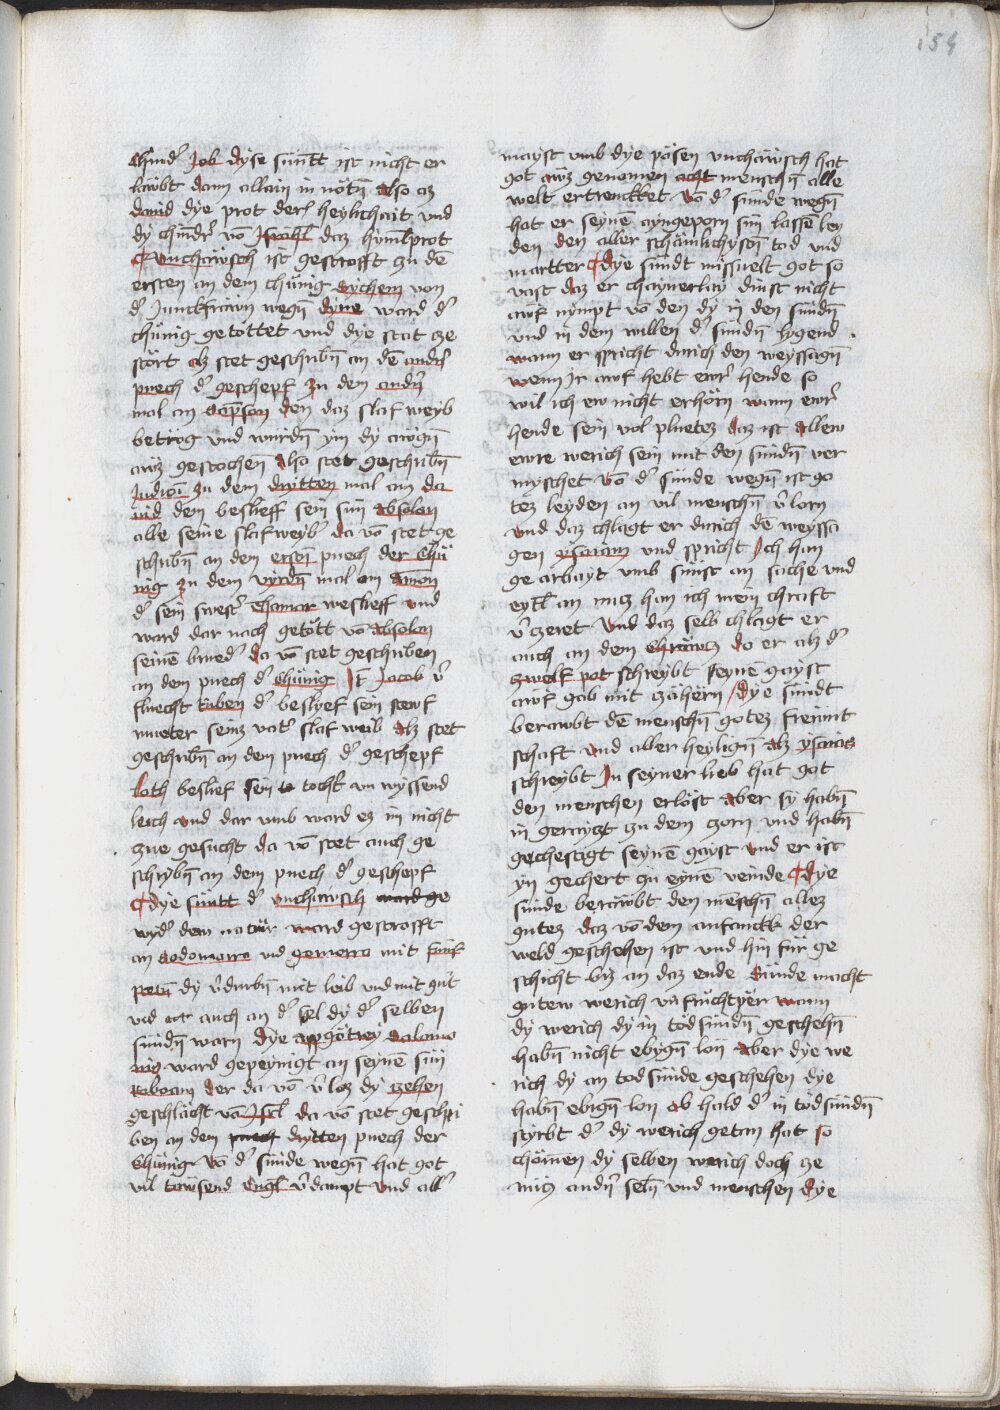 154
chind' Job dyse sündt ist nicht er
lawbt dann allain in nötñ Also az
dauid dye prot der heylichait vnd
dy chindr' võ Jsrahel daz hymlprot
¶ vnchäwsch ist gestrofft zu dē
ersten an dem chünig Sychem von
d' Junckfrawn wegñ dyne ward d'
chünig getöttet vnd dye stat ze
stört alz stet geschribñ an dē andr̃
puech d' geschepf zu dem andr̃
mal an Sampson den daz slaf weyb
betrog vnd wurdñ ym dy awgñ
awz gestochen Also stet geschribñ
Judicū zu dem dritten mal an da
uid dem beslieff sein sun absolon
alle seine slafweyb' da võ stet ge
schribñ an dem ersten puech der Chü
nig zu dem vyrdñ mal am Amon
d' sein swest' Thamar beslieff vnd
ward dar nach getött võ Absolon
seinē brued' da võ stet geschriben
an dem puech d' Chünig It̃ Jacob v'
fluecht Ruben d' beslyef sein stewf
mueter seinz vat' slaf weib Alz stet
geschribñ an dem puech d' geschepf
loth beslief sein tocht' an wyssend
leich vnd dar vmb ward ez in nicht
zue gesucht da võ stet auch ge
schrybñ an dem puech d' geschepf
¶ dye süntt d' vnchäwsch ward ge
wyd' dem natür ward gestrofft
an Sodomarra vnd gomorra mit fünf
steten dy v'durbñ mit leib vnd mit güt
vnd auch an d' sel dy d' selben
sündñ warn dye apgötrey Salomo
nis ward gepeynigt an seynē sün
Roboam der da võ v'loz dy zehen
geschlächt võ Jsrl da võ stet geschri
ben an dem puech dritten puech der
Chünig Võ d' sünde wegñ hat got
vil tawsend Engl v'dampt vnd all'
mayst vmb dye pösen vnchäwsch hat
got awz genomen acht menschñ alle
welt ertrenckket võ d' sünde wegñ
hat er seynē ayngeporn sün lassē ley
den den aller schämlichystñ tod vnd
martter ¶ dye sündt missuelt got so
vast daz er chaynerlay dinst nicht
awf nympt võ den dy in den sündñ
vnd in dem willen d' sündñ lygend
wann er spricht durich den weyssagñ
wenn Jr awf hebt ewr' hende so
wil ich ew nicht erhörn wann ewr'
hende sein vol pluetez daz ist allew
ewre werich sein mit den sündñ ver
myschet võ d' sünde wegñ ist go
tez leyden an vil menschñ v'lorn
vnd daz chlagt er durich dē weyssa
gen ysaiam vnd spricht Ich han
ge arbayt vmb sünst an sache vnd
eytl an nucz han ich mein chraft
v'czeret Vnd daz selb chlagt er
auch an dem Chräwcz do er alz d'
zwelf pot schreybt seynē gayst
awf gab mit zähern / dye sündt
berawbt dē menschñ gotez frewnt
schaft vnd aller heyligñ Alz ysaias
schreybt In seyner lieb hat got
den menschen erlöst Aber sy habñ
in geraytzt zu dem zorn vnd habñ
gechestigt seynē gayst vnd er ist
yn gechert zu eynē veinde ¶ dye
sünde berawbt den mēschñ allez
gutez daz võ dem anfanckk der
weld geschehen ist vnd hin für ge
schicht biz an daz ende Sünde macht
gutew werich vnfruchtper wann
dy werich dy in tödsündñ geschehñ
habñ nicht ebygñ lon Aber dye we
rich dy an tod sünde geschehen dye
habñ ebigñ lon ob hald d' in tödsündñ
styrbt d' dy werich getan hat so
chömen dy selben werich doch ze
nucz andr̃ selñ vnd menschen dye